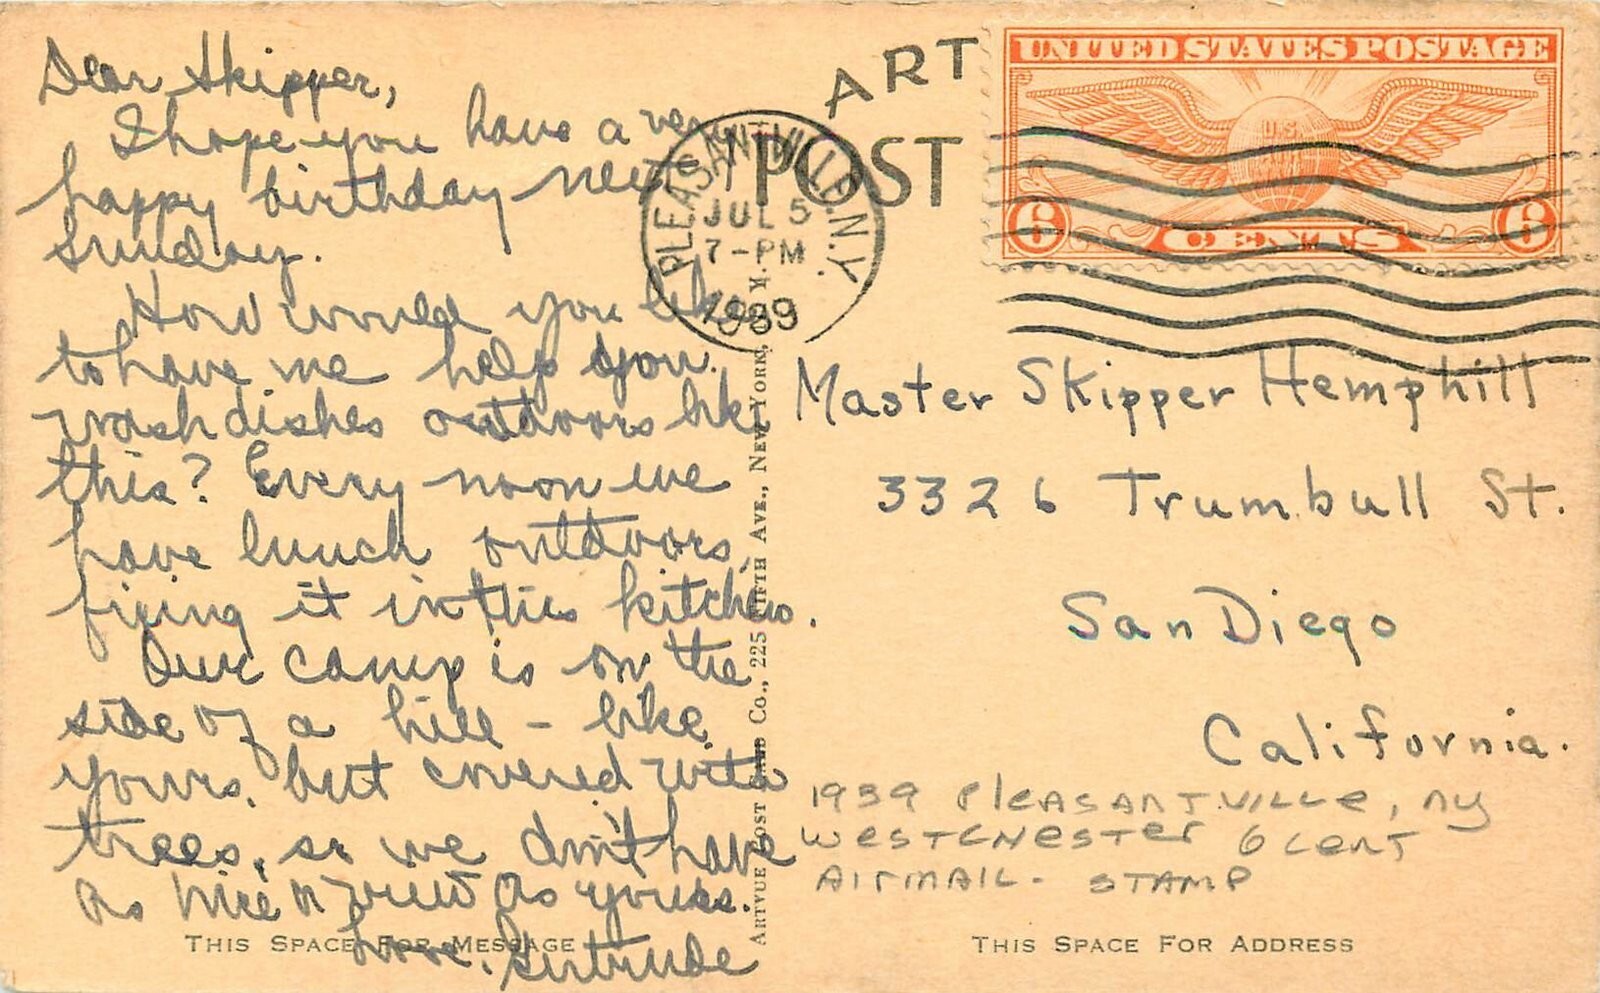 Dear Skipper,
I hope you have a very
happy birthday next
Sunday.
How would you like
to have me help you
wash dishes outdoors like
this? Every noon we
have lunch outdoors,
fixing it in this kitchen.
Our camp is on the
side of a hill - like
yours, but covered with
trees, so we don't have
as nice a view as yours.
Love, Gertrude
THIS SPACE FOR MESSAGE
ARTVUE POST CARD CO., 225 FIFTH AVE., NEW YORK, N.
ART
POST
PLEASANTVILLE N.Y.
JUL 5
7-PM
1939
UNITED STATES POSTAGE
U.S.
6 CENTS 6
Master Skipper Hemphill
3326 Trumbull St.
San Diego
California.
1939 Pleasantville, NY
Westchester 6 cent
Airmail. Stamp
THIS SPACE FOR ADDRESS